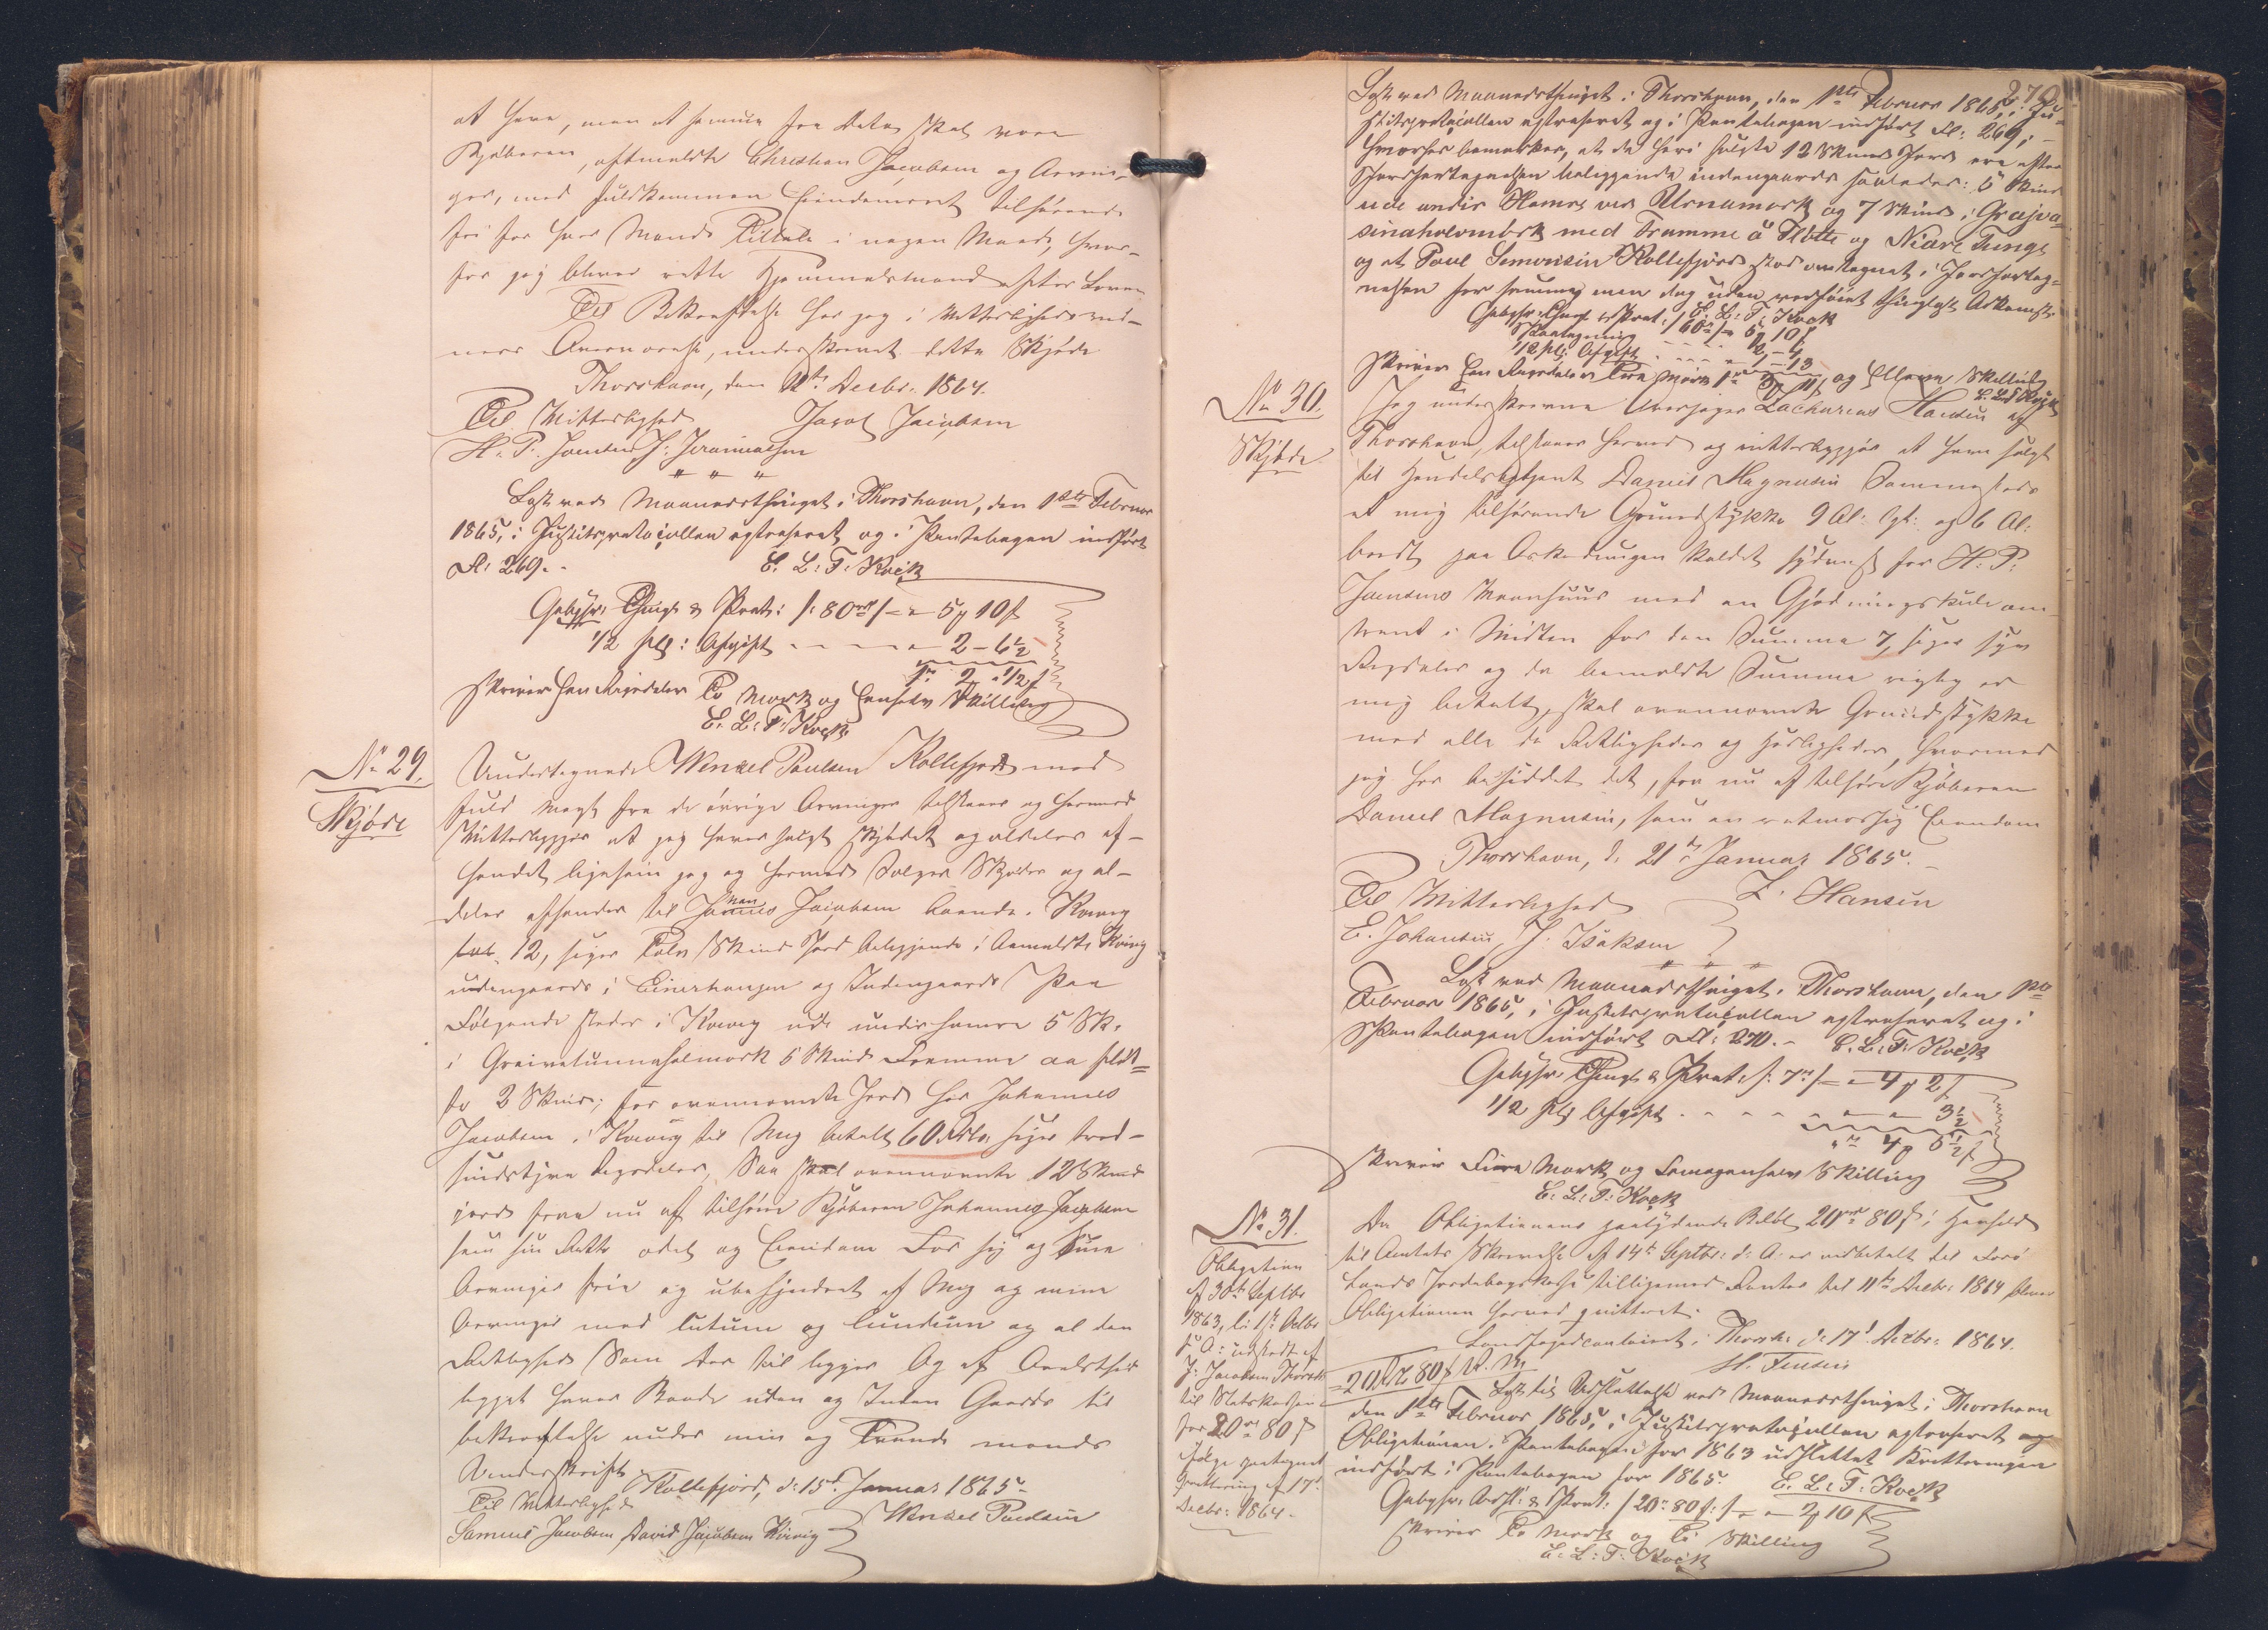 at have, men at samme fra Dato skal være
Kjøberen, ovftmeldte Christian Jacobsen og Arvin-
ger, med fuldkommen Eiendomsret tilhørende
fri for hver Mands Tiltale i nogen Maade, hvor-
for jeg bliver rette Hjemmelsmand efter Loven
Til Bekræftelse har jeg i Vitterlighedsvid-
ners Overværelse, underskrevet dette Skjøde
Thorshavn, den Decbr. 1864.
Til Vitterlighed Jacob Jacobsen
H. P. J: Jeremiasen
" " "
Læst ved Maanedsthinget i Thorshavn, den 1ste Februar
1865, i Justitsprotocollen extraheret og i Pantebogen indført
Fl: 269. - E. L: T. Kock
Gebyhr: Thingl & Prot: /: 80 rd /- = 5 # 10 ß
1/2 pCt: Afgift - - - - - 2 - 6 1/2
1 rd 2 # 1/2 ß
skriver Een Rigsdaler To Mark og Eenhalv Skilling
E. L: T: Kock
No 29.
Skjøde
Undertegnede Wenzel Poulsen Kollefjord med
fuld Magt fra de øvrige Arvinger tilstaaer og hermed
Vitterliggjør at jeg haver solgt skjødet og aldeles af-
hændet ligesom jeg og hermed Sælger Skjøder og al-
deles afhænder til Johannes Jacobsen boende i Kvivig
12, siger Tolv Skind Jord beliggende i Anmeldte Kvivig
udengaards i Einerhaugen og Indengaards Paa
Følgende steder i Kvivig ude under hamre 5 Sk.
i 5 Skind Fremme aa fløt=
te 2 Skind; for ovennævnte Jord har Johannes
Jacobsen i Kvivig til Mig betalt 60 Rdlr. siger tred-
sindstyve Rigsdaler, Saa skal ovennævnte 12 Skind
jord fra nu af tilhøre Kjøberen Johannes Jacobsen
som sin Rette odel og Eiendom For sig og Sine
Arvinger frie og ubehindret af Mig og mine
Arvinger med lutum og lundum og al den
Rettighed Som der til ligger Og af Arilds tid
ligget haver Baade uden og Inden Gaards til
bekræftelse under min og Tvende mænds
Underskrift Kollefjord, d: 15d. Januar 1865
Til Vitterlighed Wenzel Poulsen
Samuel Jacobsen David Jacobsen Kvivig
270
Læst ved Maanedsthinget i Thorshavn, den 1ste Februar 1865, i Ju-
stitsprotocollen extraheret og i Pantebogen indført Fl: 269; -
hvorhos bemærkes, at de heri solgte 12 Skind Jord ere efter
Jordfortegnelsen beliggende indengaards saaledes: 5 Skind
ude undir Hamre ved Urnamørk og 7 Skind i
med Framme á Fløtte og Niare Tunge
og at Poul Simonsen Kollefjord stod antegnet i Jordforteg-
nelsen for samme men dog uden vedføiet thinglæst Adkomst.
E. L. T. Kock
Gebyhr: Thingl & Prot: /60 rd/= 5 # 10 ß
1/2 pCt: Afgift
skriver Een Rigsdaler Tre Mark og Elleve Skilling
No 30.
Skjøde
Jeg underskrevne Overjæger Zacharias Hansen af
Thorshavn, tilstaaer herved og vitterliggjør at have solgt
til Handelsbetjent Daniel Magnusen Sammesteds
et mig tilhørende Grundstykke 9 Al: lgt: og 6 Al:
bredt paa kaldet sydvest for H. P.
Vaanhuus med en Gjødningskule om
trent i Midten for den Summa 7, siger syv
Rigsdaler og da bemeldte Summa rigtig er
mig betalt, skal ovennævnte Grundstykke
med alle de Rettigheder og Herligheder, hvormed
jeg har besiddet det, fra nu af tilhøre Kjøberen
Daniel Magnusen, som en retmæssig Eiendom
Thorshavn, d. 21de Januar 1865. -
Til Vitterlighed Z. Hansen
E. Johansen, J: Isaksen
" " "
Læst ved Maanedsthinget i Thorshavn, den 1ste
Februar 1865, i Justitsprotocollen extraheret og i
Pantebogen indført Fl: 270. - E. L: T: Kock
Gebyhr: Thingl & Prot: /: 7 rd /- = 4 # 2 ß
1/2 pCt Afgift - - - - 3 1/2
" rd 4 # 5 1/2 ß
skriver Fiire Mark og Femogenhalv Skilling
E: L: T: Kock
No 31.
Obligation
af 30te Septbr
1863, l: 1ste Octbr
s: A: udstedt af
J: Jacobsen Thorsh.
til Statskassen
for 20 rd 80 ß
ifølge paategnet
Qvittering af 17d
Decbr: 1864.
Da Obligationens paalydende Beløb 20 rd 80 ß i Henhold
til Amtets Skrivelse af 14de Septbr: d: A. er indbetalt til Færø
Lands Jordebogskasse tilligemed Renter til 11te Decbr: 1864 bliver
Obligationen herved qvitteret.
Landfogedcontoiret i Thorsh: d: 17d Decbr: 1864.
H. Finsen
= 20 Rd 80 ß R. M.
Læst til Udslettelse ved Maanedsthinget i Thorshavn
den 1ste Februar 1865, i Justitsprotocollen extraheret og
Obligationen i Pantebogen for 1863 udslettet Kvitteringen
indført i Pantebogen for 1865. E. L: T. Kock
Gebyhr: Udsl: & Prot: /20 rd 80 ß:/- = 2 # 10 ß
skriver To Mark og Ti Skilling
E: L: T: Kock